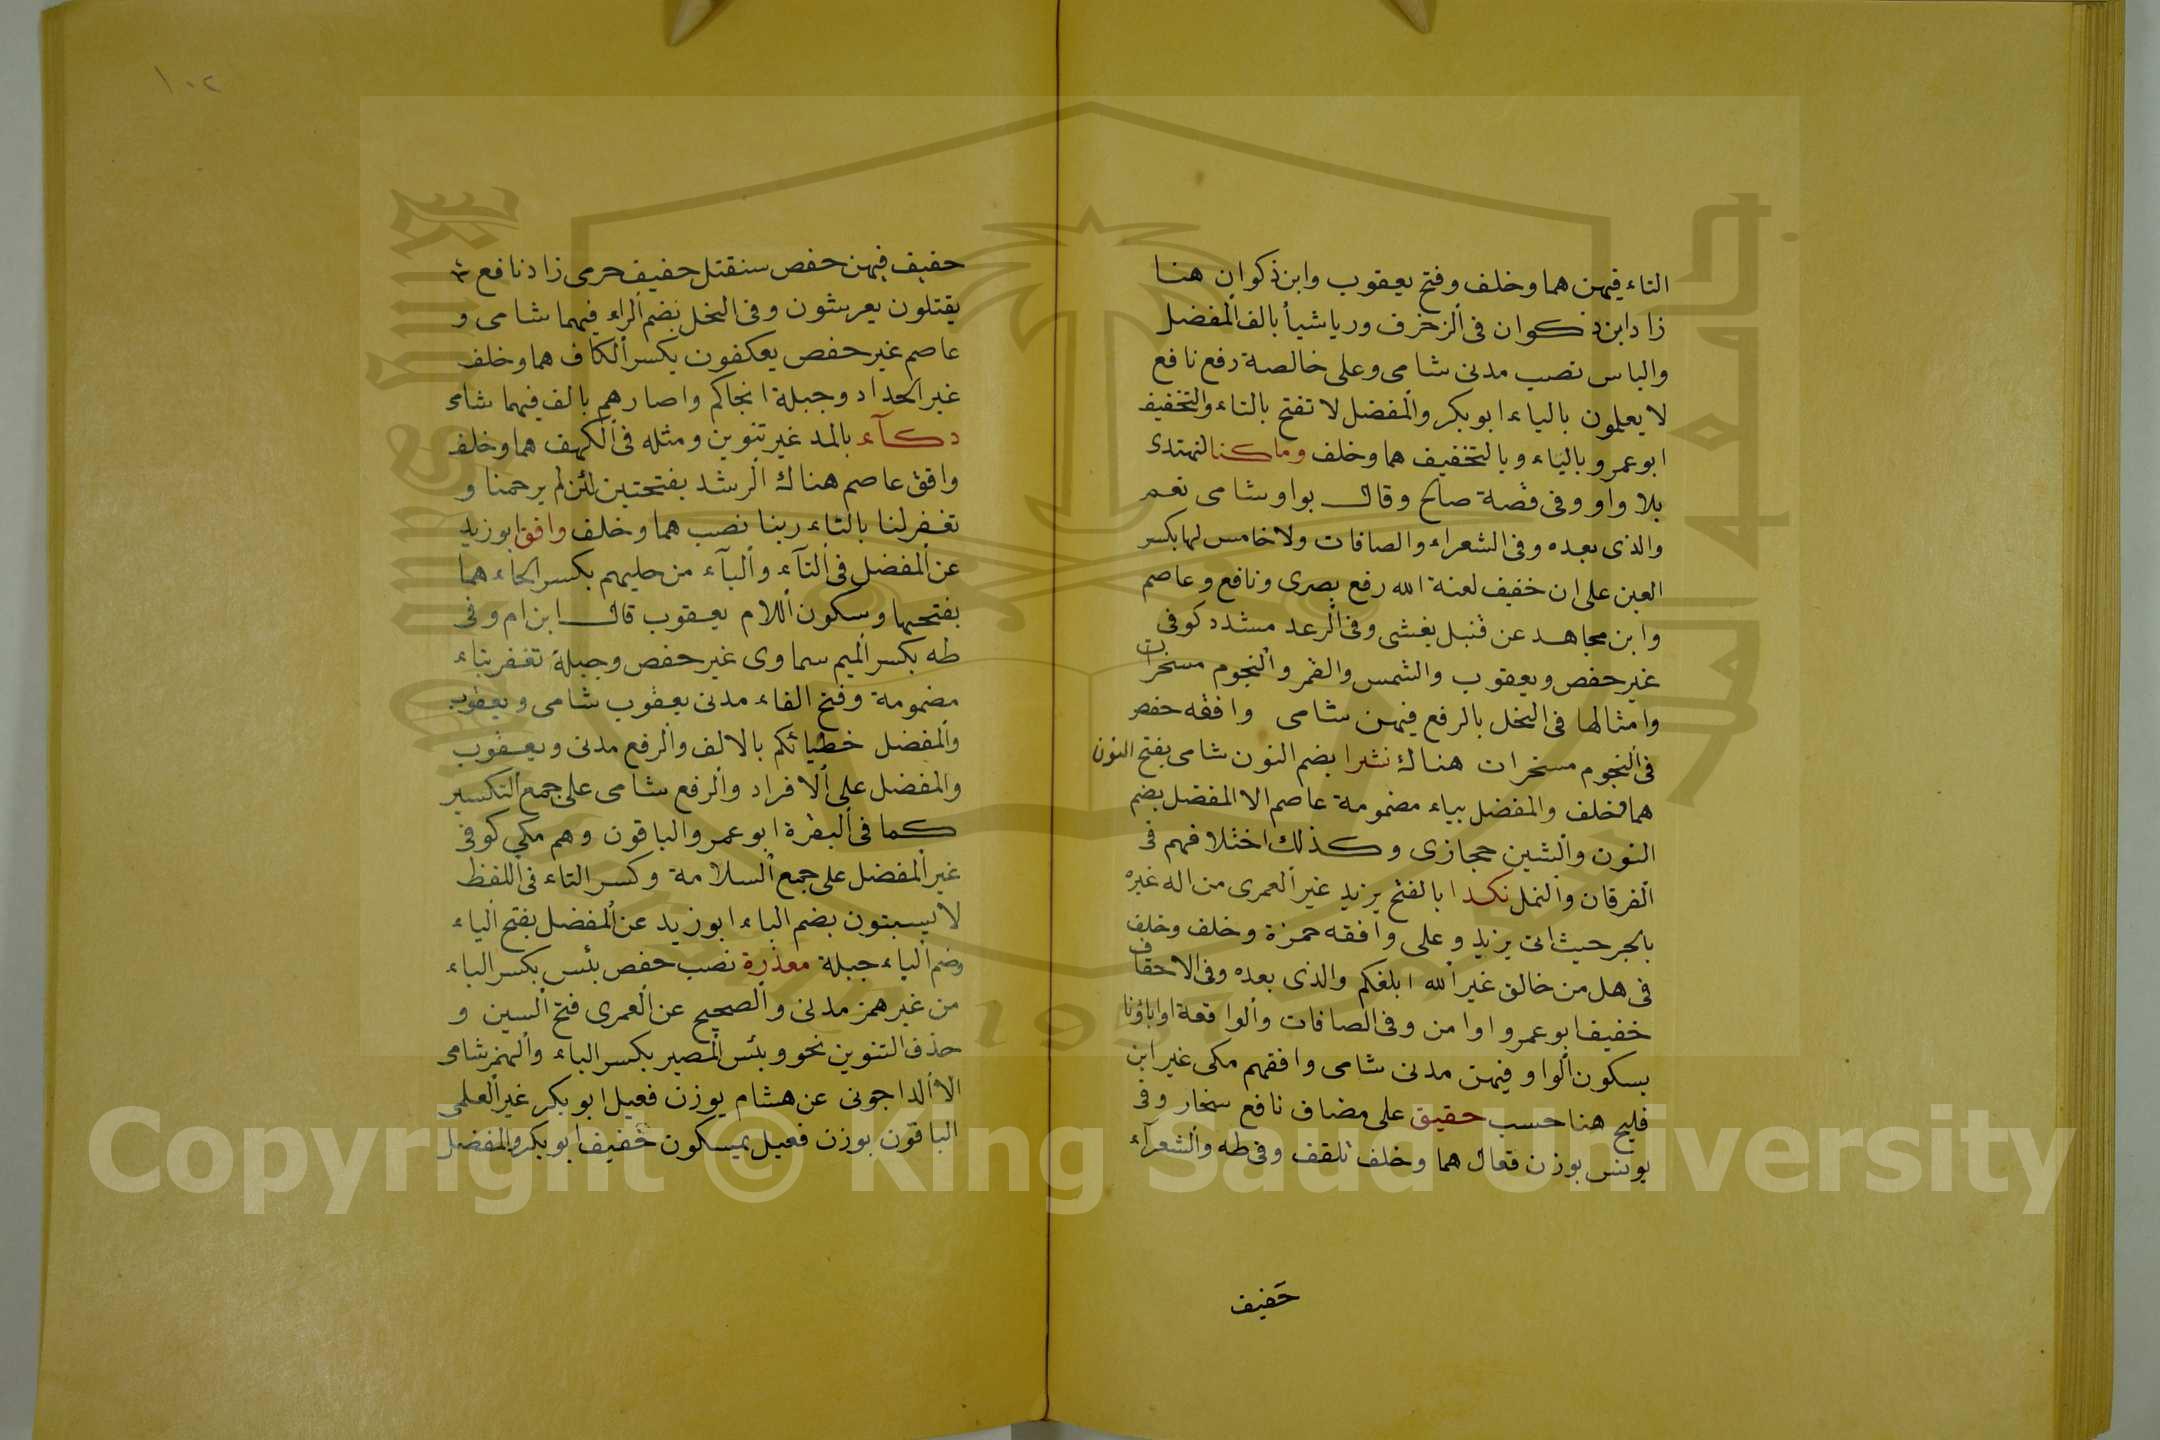 التاء فيهن هما وخلف وفتح يعقوب وابن ذكوان هنا
زاد ابن ذكوان في الزخرف ورياشيأ بالف المفضل
والباس نصب مدنى شامى وعلى خالصة رفع نافع
لا يعلمون بالياء ابو بكر والمفضل لا تفتح بالتاء والتخفيف
ابو عمرو بالياء وبالتخفيف هما وخلف وما كنا لنهتدى
بلا واو وفى قصة صالح وقال بواو شامى نعم
والذى بعده وفى الشعراء والصافات ولا خامس لها بكسر
العين على ان خفيف لعنة الله رفع بصرى ونافع وعاصم
وابن مجاهد عن قنبل يغشى وفى الرعد مشدد كوفى
غير حفص ويعقوب والشمس والقمر والنجوم مسخرات
وامثالها فى النحل بالرفع فيهن شامى وافقه حفص
فى النجوم مسخرات هناك نشرا بضم النون شامى بفتح النون
هما فخلف والمفضل بباء مضمومة عاصم الا المفضل بضم
النون والشين حجازى وكذلك اختلافهم فى
الفرقان والنمل نكدا بالفتح يزيد غير العمرى من اله غيره
بالجر حيث اتى يزيد وعلى وافقه حمزة وخلف وخلف
فى هل من خالق غير الله ابلغكم والذى بعده وفى الاحقاف
خفيف ابو عمرو او امن وفى الصافات والواقعة او اباؤنا
بسكون الواو فيهن مدنى شامى وافقهم مكى غير ابن
فليح هنا حسب حقيق على مضاف نافع سحار وفى
يونس بوزن فعال هما وخلف تلقف وفى طه والشعرآء
خفيف
١٠٢
خفيف فيهن حفص سنقتل خفيف حرمى زاد نافع
يقتلون يعرشون وفى النحل بضم الراء فيهما شامى و
عاصم غير حفص يعكفون بكسر الكاف هما وخلف
غير الحداد وجبلة انجاكم واصارهم بالف فيهما شامى
دكآء بالمد غير تنوين ومثله فى الكهف هما وخلف
وافق عاصم هناك الرشد بفتحتين لئن لم يرحمنا و
تغفر لنا بالتاء ربنا نصب هما وخلف وافق ابو زيد
عن المفضل فى التآء والبآء من حليهم بكسر الحاء هما
بفتحها وسكون اللام يعقوب قال ابن ام وفى
طه بكسر الميم سماوى غير حفص وجبلة تغفر بتاء
مضمومة وفتح الفاء مدنى يعقوب شامى ويعقوب
والمفضل خطيائكم بالالف والرفع مدنى ويعقوب
والمفضل على الافراد والرفع شامى على جمع التكسير
كما فى البقرة ابو عمر والباقون وهم مكى كوفى
غير المفضل على جمع السلامة وكسر التاء فى اللفظ
لا يسبتون بضم الباء ابو زيد عن المفضل بفتح الياء
وضم الباء جبلة معذرة نصب حفص بئس بكسر الباء
من غير همز مدنى والصحيح عن العمرى فتح السين و
حذف التنوين نحو وبئس المصير بكسر الباء والهمز شامى
الا الداجونى عن هشام بوزن فعيل ابو بكر غير العلمى
الباقون بوزن فعيل يمسكون خفيف ابو بكر والمفضل
Copyright © King Saud University